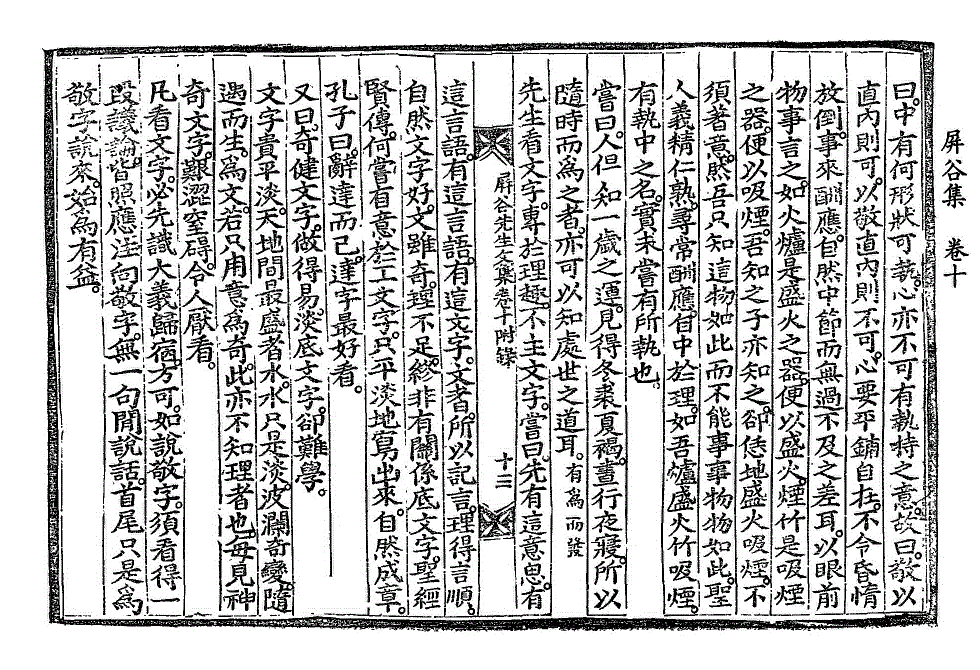 屏谷集　卷十
曰。中有何形狀可執。心亦不可有執持之意。故曰。敬以
直內則可。以敬直內則不可。心要平鋪自在。不令昏惰
放倒。事來酬應。自然中節而無過不及之差耳。以眼前
物事言之。如火爐是盛火之器。便以盛火。煙竹是吸煙
之器。便以吸煙。吾知之。子亦知之。卻恁地盛火吸煙。不
須著意。然吾只知這物如此。而不能事事物物如此。聖
人義精仁熟。尋常酬應。自中於理。如吾爐盛火竹吸煙。
有執中之名。實未嘗有所執也。
嘗曰。人但知一歲之運。見得冬裘夏褐。晝行夜寢。所以
隨時而爲之者。亦可以知處世之道耳。有爲而發
屛谷先生文集卷十附錄
十二
先生看文字。專於理趣。不主文字。嘗曰。先有這意思。有
這言語。有這言語。有這文字。文者。所以記言。理得言順。
自然文字好。文雖奇。理不足。終非有關係底文字。聖經
賢傳。何嘗有意於工文字。只平淡地寫出來。自然成章。
孔子曰。辭達而已。達字最好看。
又曰。奇健文字。做得易。淡底文字。卻難學。
文字貴平淡。天地間最盛者水。水只是淡。波瀾奇變。隨
遇而生。爲文。若只用意爲奇。此亦不知理者也。每見神
奇文字。艱澀窒碍。令人厭看。
凡看文字。必先識大義歸宿。方可。如說敬字。須看得一
段議論。皆照應注向敬字。無一句閒說話。首尾只是爲
敬字說來。始爲有益。